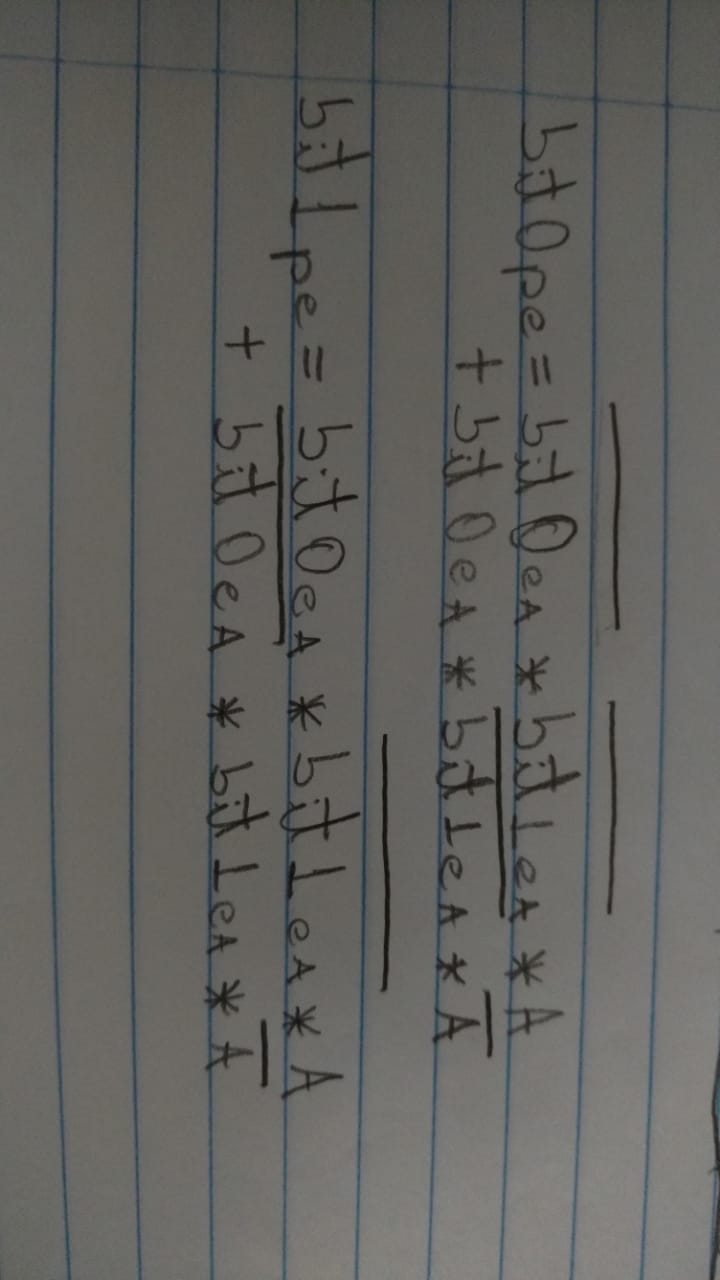 bit0pe = b̅i̅t̅0̅e̅A̅ * b̅i̅t̅1̅e̅A̅ * A
+ bit0eA * b̅i̅t̅1̅e̅A̅ * A̅
bit1pe = bit0eA * b̅i̅t̅1̅e̅A̅ * A
+ b̅i̅t̅0̅e̅A̅ * bit1eA * A̅